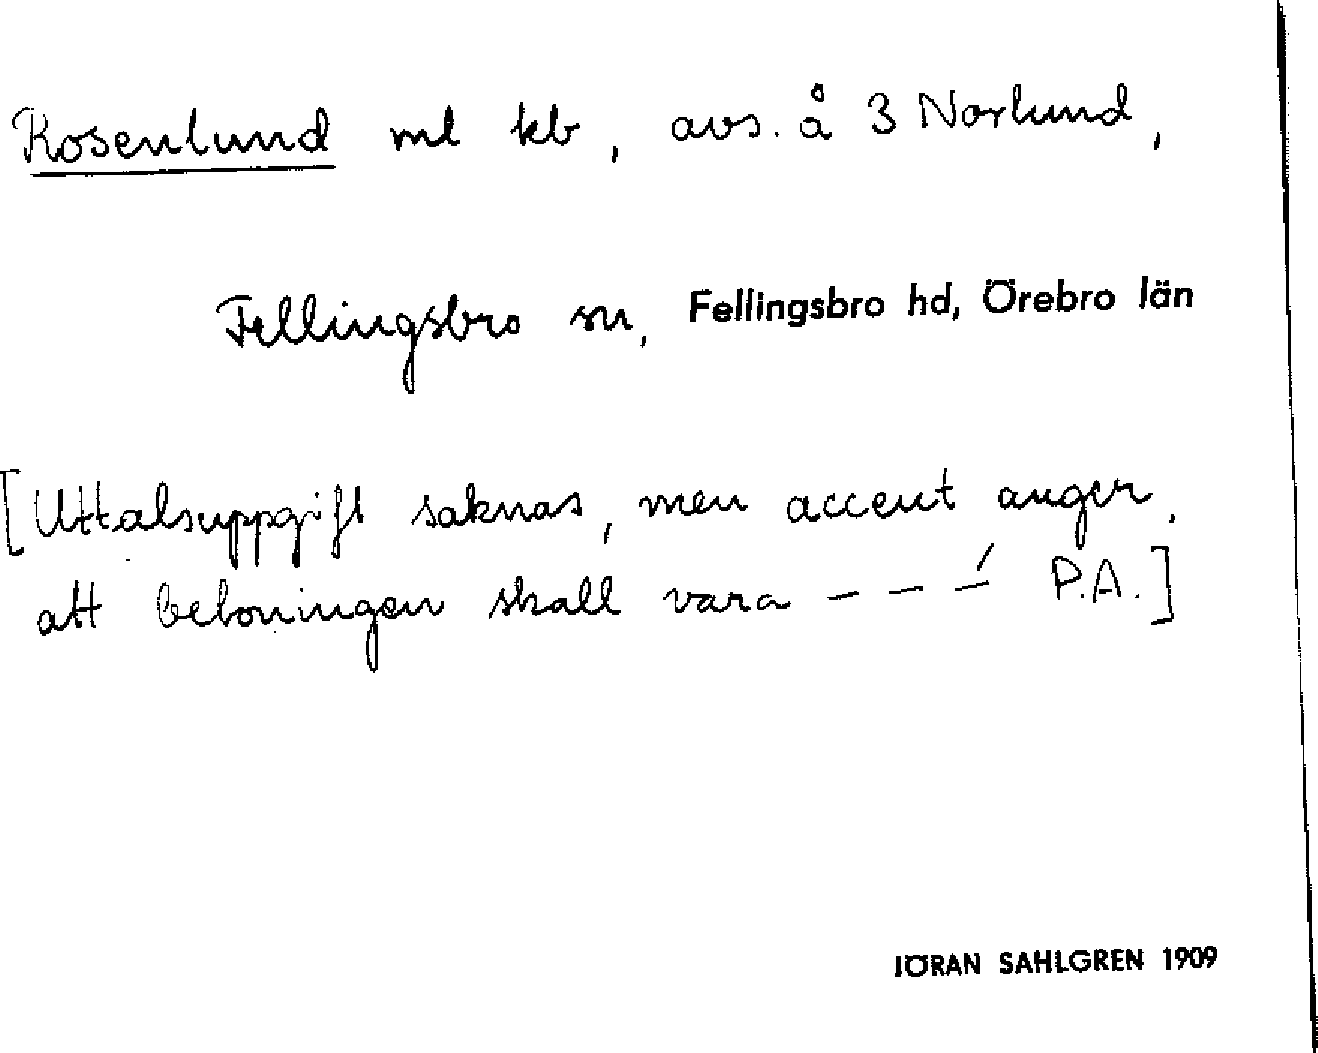 Rosenlund ml kb, avs. å 3 Norlund,
Fellingsbro sn, Fellingsbro hd, Örebro län
[Uttalsuppgift saknas, men accent anger,
att betoningen skall vara – – –́ P.A.]
JÖRAN SAHLGREN 1909